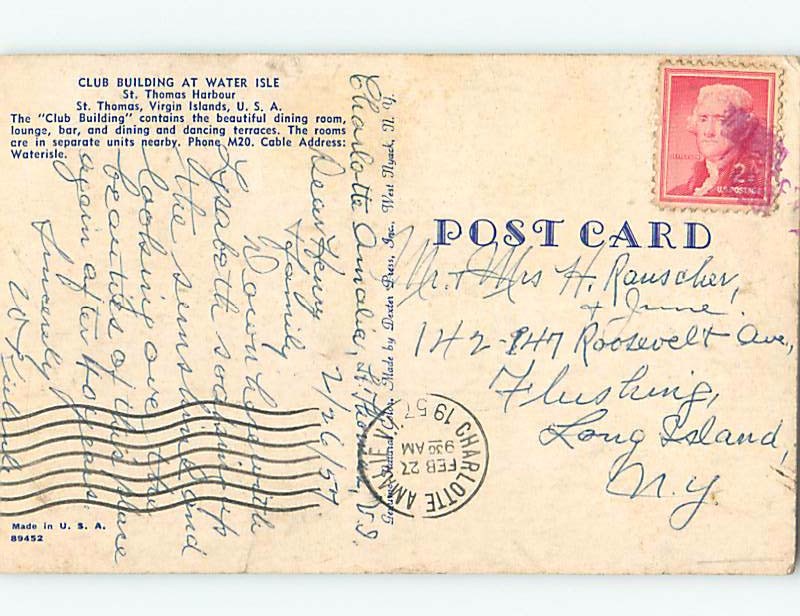 CLUB BUILDING AT WATER ISLE
St. Thomas Harbour
St. Thomas, Virgin Islands, U. S. A.
The "Club Building" contains the beautiful dining room,
lounge, bar, and dining and dancing terraces. The rooms
are in separate units nearby. Phone M20. Cable Address:
Waterisle.
Charlotte Amalie, St. Thomas, V.I.
2/26/57
Dear Henry
& family
Down here with
Lysabeth soaking up
the sunshine and
looking over the
beauties of this place
again after 40 years.
Sincerely
Made in U. S. A.
89452
Made by Dexter Press, Inc., West Nyack, N. Y.
U.S. POSTAGE
POST CARD
Mr. + Mrs H. Rauscher,
+ June.
142-947 Roosevelt Ave.,
Flushing,
Long Island,
N.Y.
CHARLOTTE AMALIE
FEB 27
9 30 AM
1957